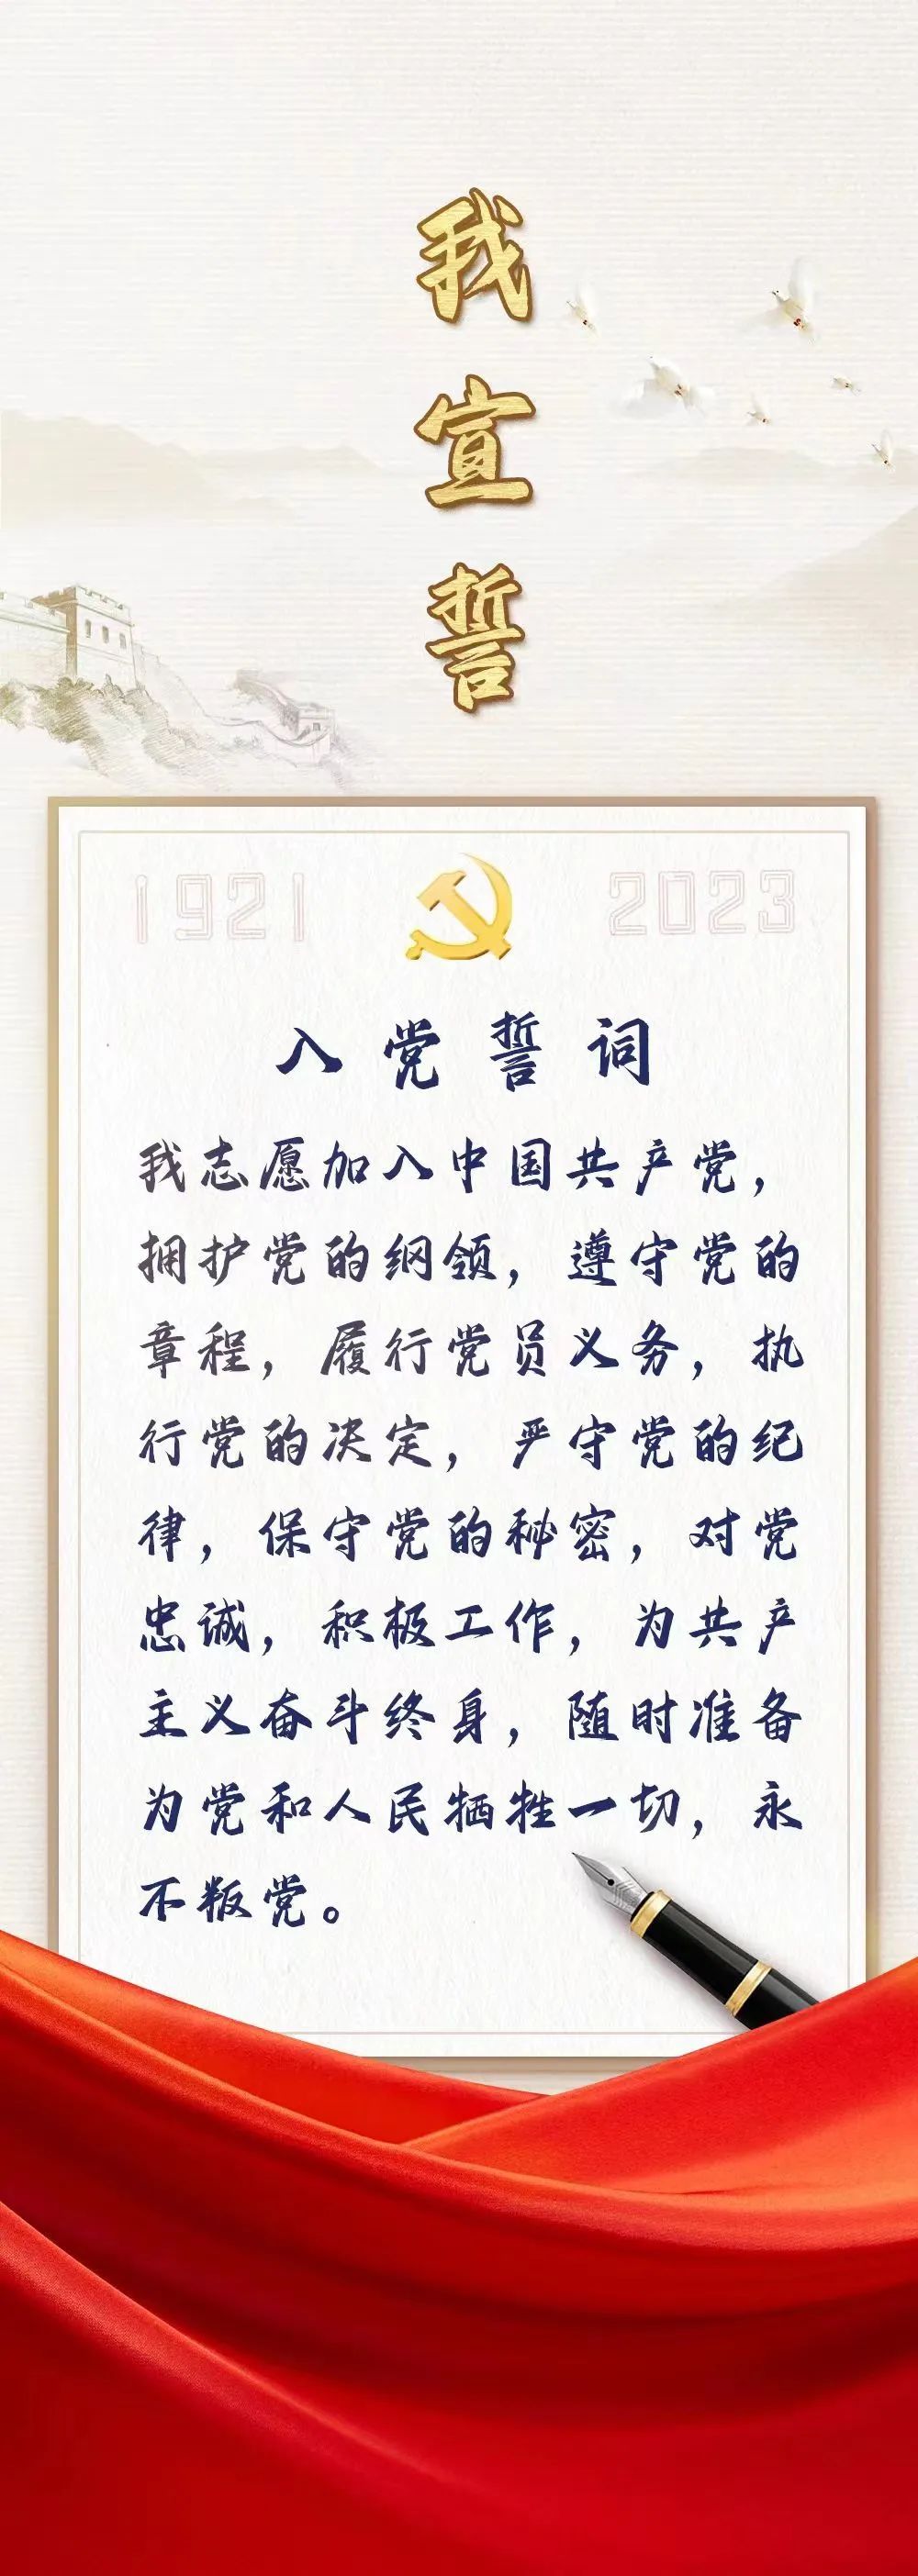 我宣誓
1921 2023
入党誓词
我志愿加入中国共产党，
拥护党的纲领，遵守党的
章程，履行党员义务，执
行党的决定，严守党的纪
律，保守党的秘密，对党
忠诚，积极工作，为共产
主义奋斗终身，随时准备
为党和人民牺牲一切，永
不叛党。